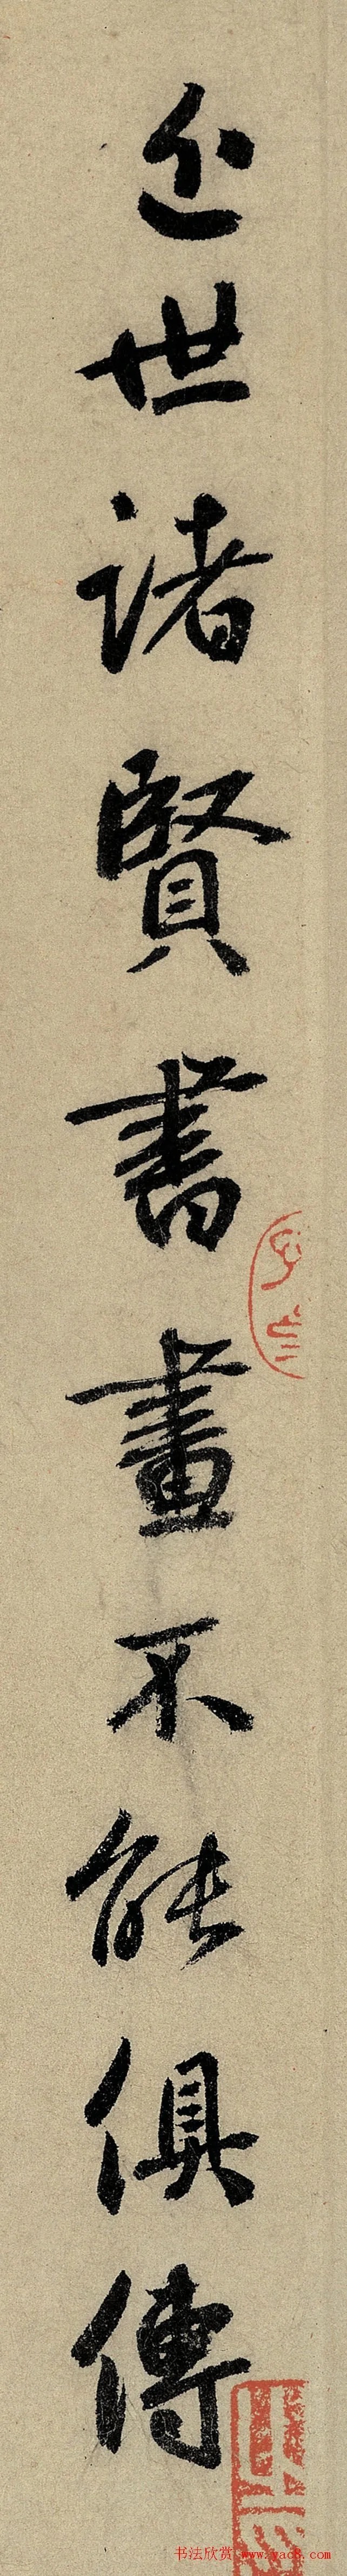 近世諸賢書畫不能俱傳
书法欣赏 www.yac8.com